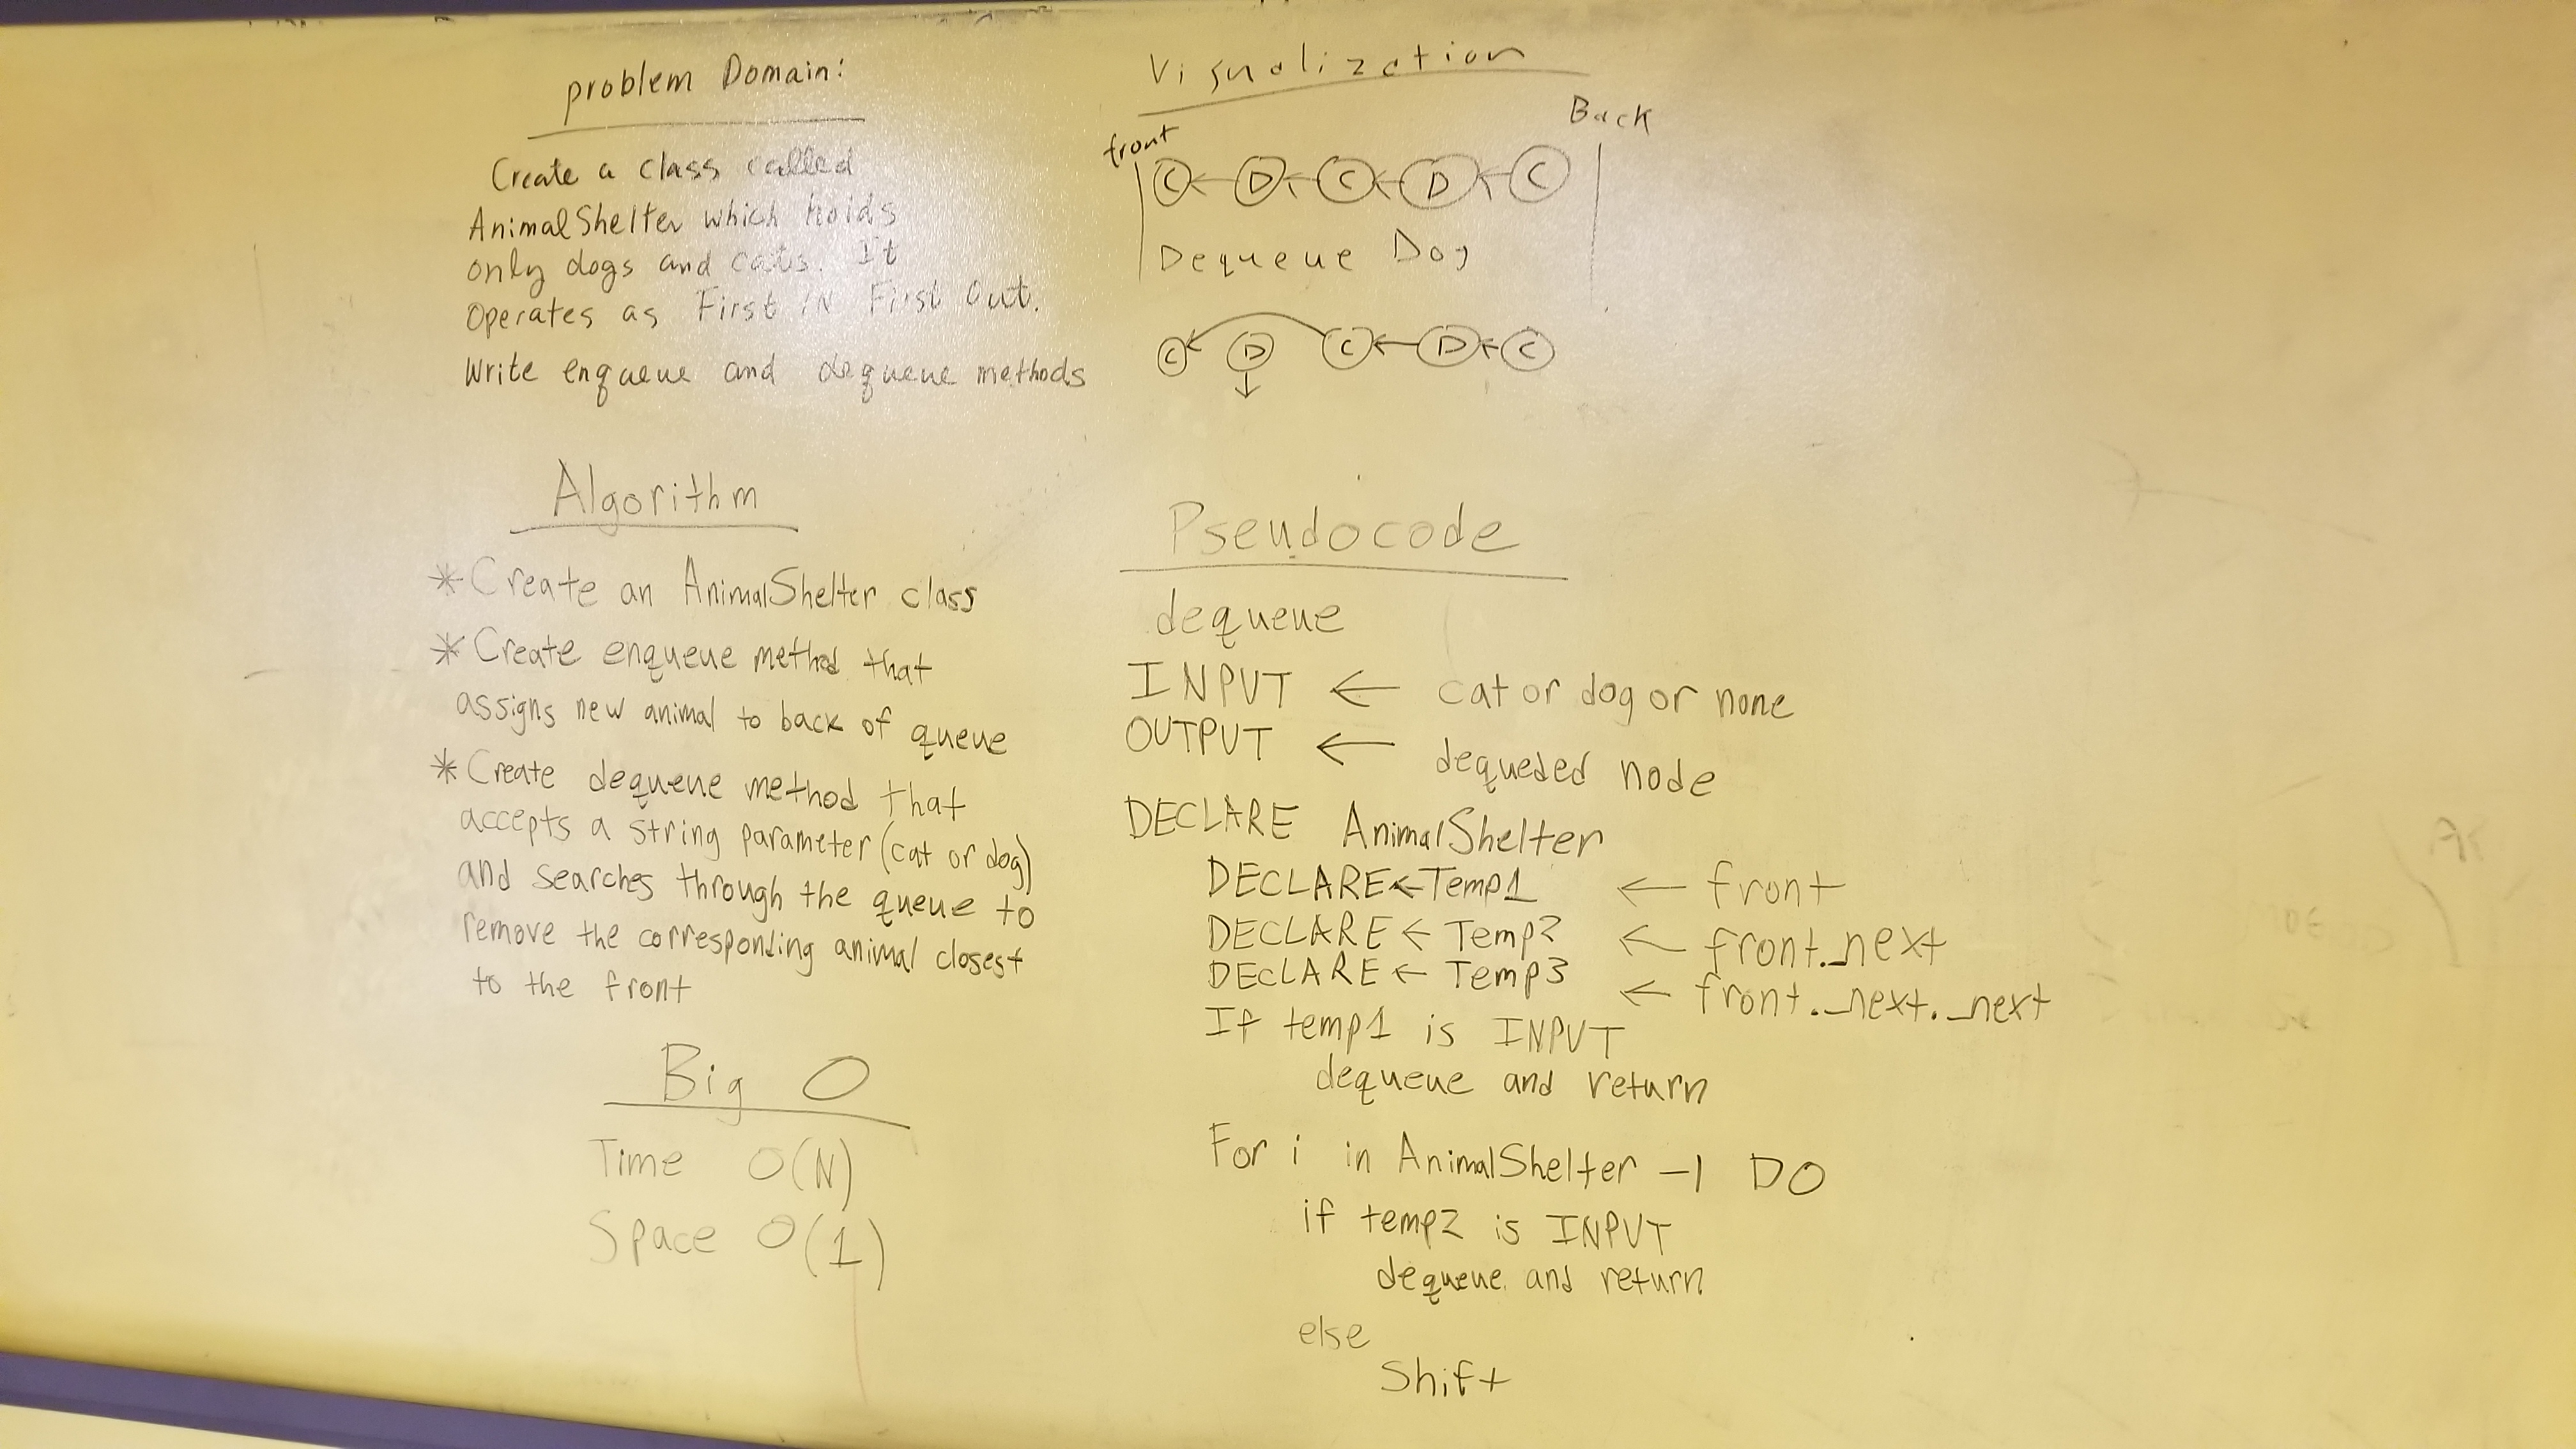 problem Domain:
Create a class called
AnimalShelter which holds
only dogs and cats. It
Operates as First IN First Out.
Write enqueue and dequeue methods
Visualization
front
Back
C ← D ← C ← D ← C
Dequeue Dog
C D C ← D ← C
Algorithm
* Create an AnimalShelter class
* Create enqueue method that
assigns new animal to back of queue
* Create dequeue method that
accepts a string parameter (cat or dog)
and searches through the queue to
remove the corresponding animal closest
to the front
Big O
Time O(N)
Space O(1)
Pseudocode
dequeue
INPUT ← cat or dog or none
OUTPUT ← dequeded node
DECLARE AnimalShelter
DECLARE ← Temp1 ← front
DECLARE ← Temp2 ← front._next
DECLARE ← Temp3 ← front._next._next
If temp1 is INPUT
dequeue and return
For i in AnimalShelter -1 DO
if temp2 is INPUT
dequeue and return
else
Shift